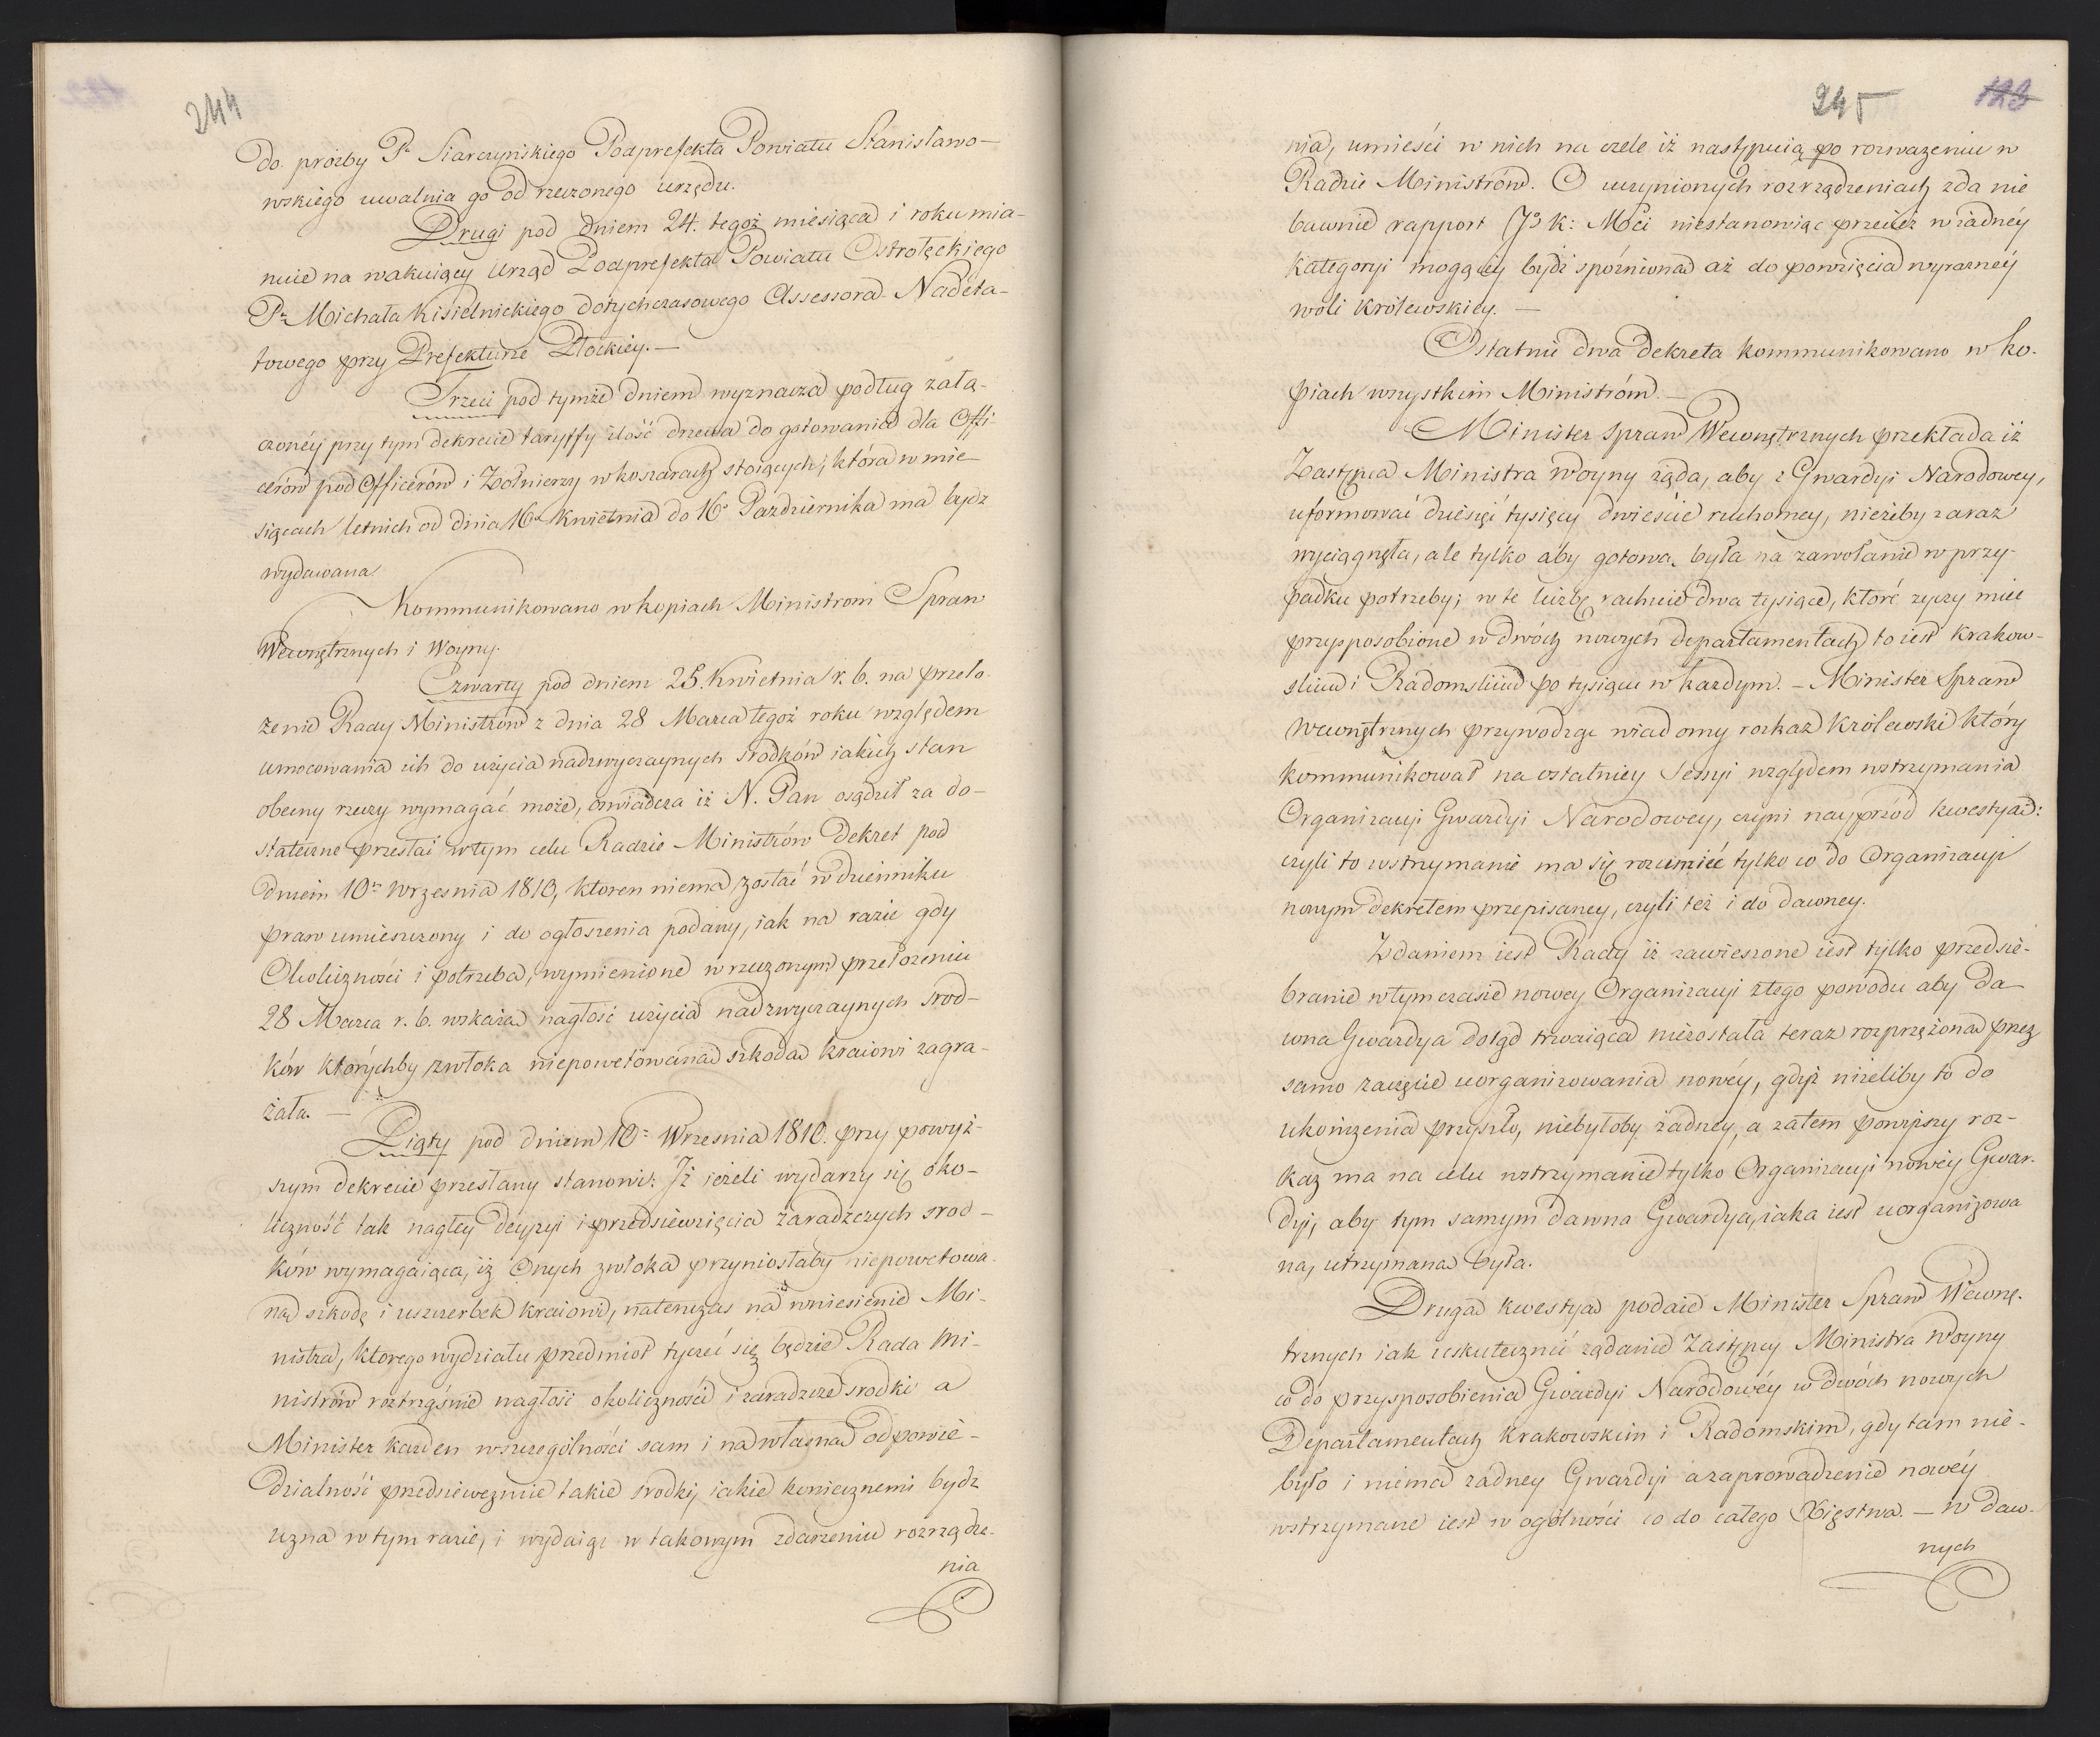 244
do prozby P. Siarczynskiego Podprefekta Powiatu Stanisławo-
wskiego uwalnia go od rzeczonego urzędu.
Drugi pod dniem 24. tegoż miesiąca i roku mia-
nuie na wakuiący Urząd Podprefekta Powiatu Ostrołęckiego
P. Michała Kisielnickiego dotychczasowego Assessora Nadeta-
towego przy Prefekturze Płockiey. —
Trzeci pod tymże dniem wyznacza podług załą-
czonéy przy tym dekrecie taryffy ilość drzewa do gotowania dla Offi-
cerów pod Officerów i Żołnierzy w koszarach stoiących, która w mie-
siącach letnich od dnia 16º Kwietnia do 16º Pazdziernika ma bydz
wydawana.
Kommunikowano w kopiach Ministrom Spraw
Wewnętrznych i Woyny.
Czwarty pod dniem 25. Kwietnia r. b. na przeło-
żenie Rady Ministrów z dnia 28 Marca tegoż roku względem
umocowania ich do użycia nadzwyczaynych srodków iakich stan
obecny rzeczy wymagać może, oswiadcza iż N. Pan osądził za do-
stateczne przesłać w tym celu Radzie Ministrów Dekret pod
dniem 10m Wrzesnia 1810, ktoren niema zostać w dzienniku
praw umieszczony i do ogłoszenia podany, iak na razie gdy
Okoliczności i potrzeba, wymienione w rzeczonym przełożeniu
28 Marca r. b. wskaże nagłość użycia nadzwyczaynych srod-
ków którychby zwłoka niepowetowana szkoda kraiowi zagra-
żała. —
Piąty pod dniem 10m Wrzesnia 1810. przy powyż-
szym dekrecie przesłany stanowi: Iż ieżeli wydarzy się oko-
liczność tak nagłey decyzyi i przedsiewzięcia zaradczych srod-
ków wymagaiąca, iż Onych zwłoka przyniosłaby niepowetowa-
ną szkodę i uszczerbek kraiowi, natenczas na wniesienie Mi-
nistra, ktorego wydziału przedmiot tyczeć się będzie Rada Mi-
nistrów roztrząśnie nagłość okoliczności i zaradcze srodki a
Minister każden wszczególności sam i na własną odpowie-
dzialność przedsiewezmie takie srodki, iakie koniecznemi bydz
uzna w tym razie, i wydaiąc w takowym zdarzeniu rozrządze-
nia
245 123
nia, umieści w nich na czele iż następuią po rozważeniu w
Radzie Ministrów. O uczynionych rozrządzeniach zda nie
bawnie rapport Jº K: Mci niestanowiąc przecież w żadnéy
kategoryi mogącéy bydź spóźniona aż do powzięcia wyrazneéy
woli Królewskiey. —
Ostatnie dwa Dekreta kommunikowano w ko-
piach wszystkim Ministróm. —
Minister Spraw Wewnętrznych przekłada iż
Zastępca Ministra Woyny żąda, aby z Gwardyi Narodowey,
uformować dziesięć tysięcy dwieście ruchomey, nieżeby zaraz
wyciągnęła, ale tylko aby gotowa była na zawołanie w przy-
padku potrzeby; w te liczbę rachuie dwa tysiące, które życzy mieć
przysposobione w dwóch nowych departamentach to iest Krakow-
skim i Radomskim po tysiącu w każdym. – Minister Spraw
Wewnętrznych przywodząc wiadomy rozkaz Królewski który
kommunikował na ostatniey Sessyi względem wstrzymania
Organizacyi Gwardyi Narodowey, czyni nayprzód kwestyą:
czyli to wstrzymanie ma się rozumieć tylko co do Organizacyi
nowym dekretem przepisaney, czyli też i do dawney.
Zdaniem iest Rady iż zawieszone iest tylko przedsie-
branie wtym czasie nowey Organizacyi ztego powodu aby Da-
wna Gwardya dotąd trwaiąca niezostała teraz rozprzężona przez
samo zaczęcie uorganizowania nowéy, gdyż nizeliby to do
ukończenia przyszło, niebyłoby żadney, a zatem powyższy roz-
kaz ma na celu wstrzymanie tylko Organizacyi nowéy Gwar-
dyi, aby tym samym dawna Gwardya, iaka iest uorganizowa
na, utrzymana była.
Drugą kwestyą podaie Minister Spraw Wewnę-
trznych iak uskutecznić żądanie Zastępcy Ministra Woyny
co do przysposobienia Gwardyi Narodowéy w dwóch nowych
Departamentach Krakowskim i Radomskim, gdy tam nie-
było i niema żadney Gwardyi a zaprowadzenie nowéy
wstrzymane iest w ogólności co do całego Xięstwa. — W daw-
nych